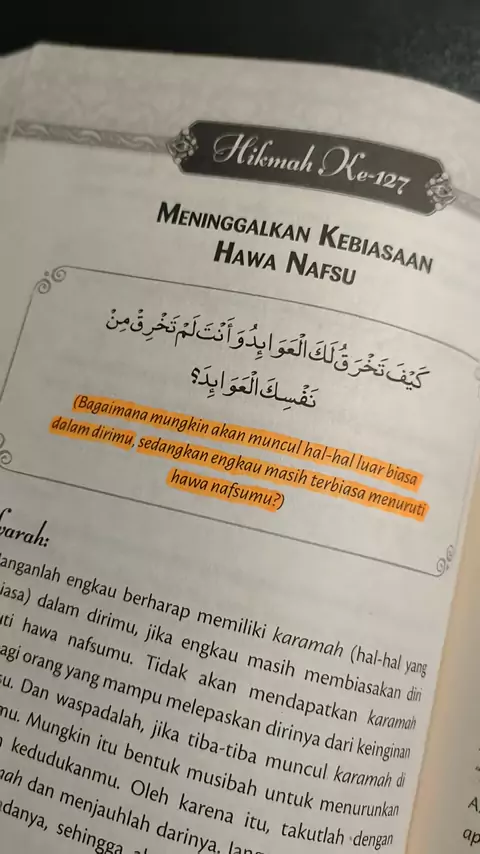 Hikmah Ke-127
MENINGGALKAN KEBIASAAN
HAWA NAFSU
كَيْفَ تَخْرَقُ لَكَ الْعَوَايِدُ وَأَنْتَ لَمْ تَخْرِقْ مِنْ
نَفْسِكَ الْعَوَايِدَ؟
(Bagaimana mungkin akan muncul hal-hal luar biasa
dalam dirimu, sedangkan engkau masih terbiasa menuruti
hawa nafsumu?)
arah:
anganlah engkau berharap memiliki karamah (hal-hal yang
iasa) dalam dirimu, jika engkau masih membiasakan diri
uti hawa nafsumu. Tidak akan mendapatkan karamah
agi orang yang mampu melepaskan dirinya dari keinginan
su. Dan waspadalah, jika tiba-tiba muncul karamah di
mu. Mungkin itu bentuk musibah untuk menurunkan
kedudukanmu. Oleh karena itu, takutlah dengan
mah dan menjauhlah darinya,
adanya, sehingga